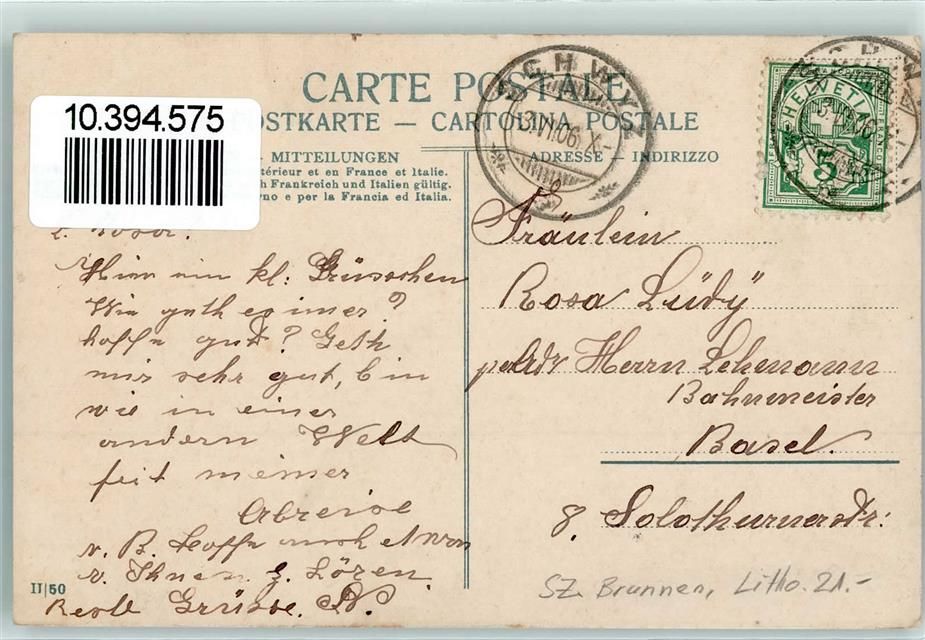 CARTE POSTALE
POSTKARTE — CARTOLINA POSTALE
10.394.575
MITTEILUNGEN
ADRESSE — INDIRIZZO
térieur et en France et Italie.
h Frankreich und Italien gültig.
rno e per la Francia ed Italia.
SCHWYZ
3.VI.06.X-
HELVETIA
5
L. Rosa!
Hier ein kl: Grüsschen
Wie geth es imer?
hoffe gut? Geth
mir sehr gut, bin
wie in einer
andern Welt
seit meiner
Abreise
v. B. Hoffe auch etwas
v. Ihnen z. hören.
Beste Grüsse.
Fräulein
Rosa Lüdÿ
Herrn Lehmann
Bahnmeister
Basel.
8. Solothurnerstr:
II|50
SZ Brunnen, Litho. 21.-